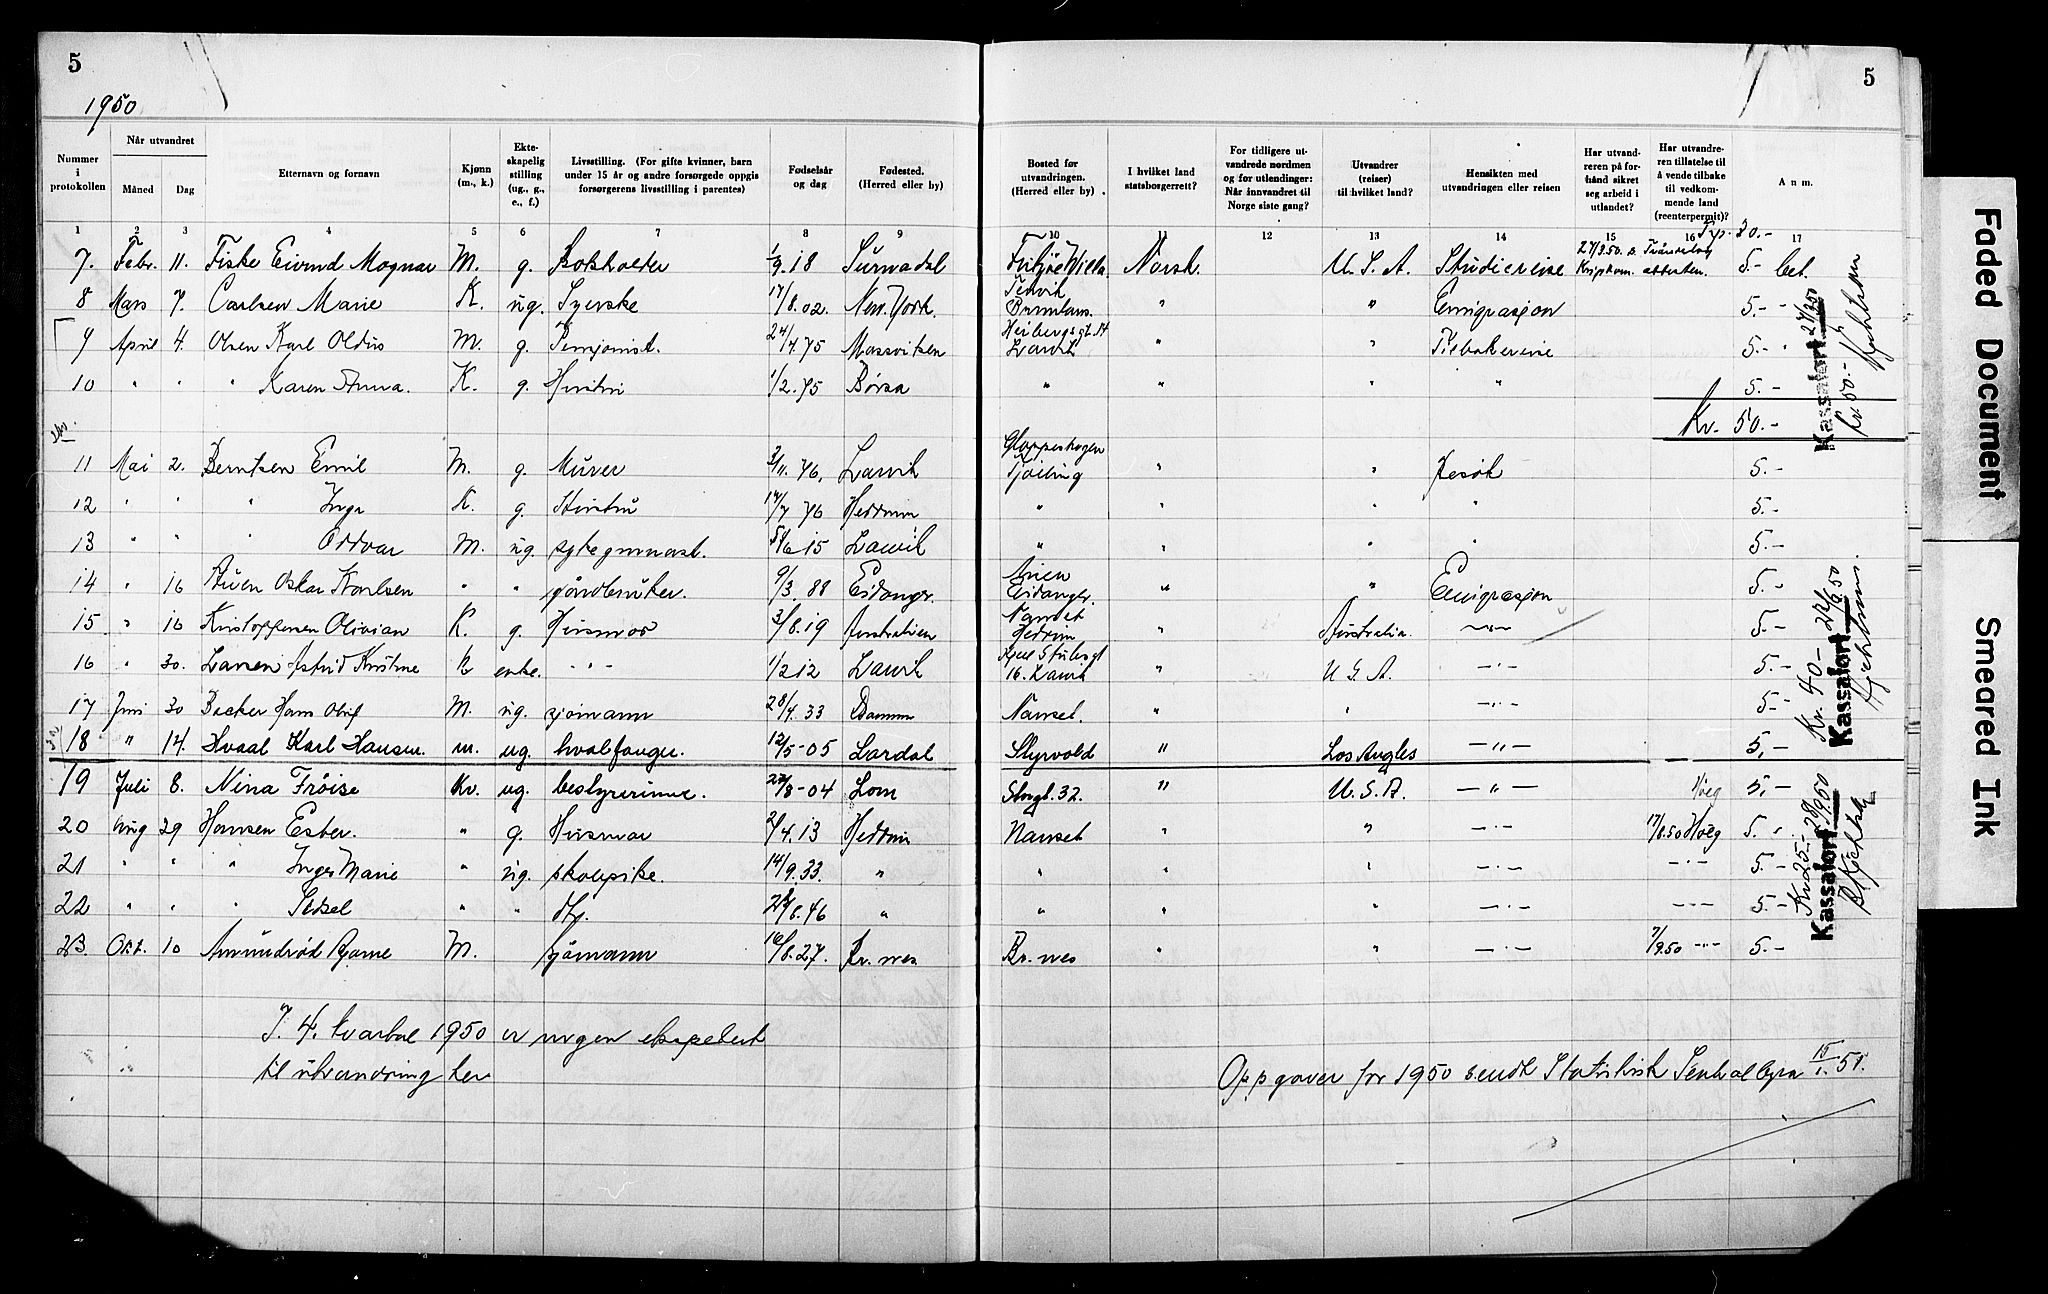 5
5
1950
Nummer i protokollen
Når utvandret
Måned
Dag
Etternavn og fornavn
Kjønn (m., k.)
Ekteskapelig stilling (ug., g., e., f.)
Livsstilling. (For gifte kvinner, barn under 15 år og andre forsørgede oppgis forsørgerens livsstilling i parentes)
Fødselsår og dag
Fødested. (Herred eller by)
Bosted før utvandringen. (Herred eller by)
I hvilket land statsborgerrett?
For tidligere utvandrede nordmen og for utlendinger: Når innvandret til Norge siste gang?
Utvandrer (reiser) til hvilket land?
Hensikten med utvandringen eller reisen
Har utvandreren på forhånd sikret seg arbeid i utlandet?
Har utvandreren tillatelse til å vende tilbake til vedkommende land (reenterpermit)?
Anm.
1 2 3 4 5 6 7 8 9 10 11 12 13 14 15 16 17
30.-
7. Febr. 11. Fiske Eivind Magnar M. g. Bokholder 1/9.18 Surnadal Norsk. U.S.A. Studiereise 27/3.50 5.- bet.
8 Mars 7. Carlsen Marie K. ug. Syerske 17/8.02. New York. Brunlanes. " " Emigrasjon 5.- "
9 April 4. Olsen Karl Oldus M. g. Pensjonist. 24/4.75 Larvik " " 5.- "
10 " " " Karen Anna. K. g. Hustru 1/2.75 Børsa " " " " 5.-
Kr. 50.-
11 Mai 2. Berntsen Emil M. g. Murer 3/11.76. Larvik Tjølling " " Besøk 5.-
12 " " " Inga K. g. Hustru 14/7 76 Hedrum " " " " 5.-
13 " " " Oddvar M. ug. sykegymnast. 15 Larvik " " " " 5.-
14 " 16 Oskar Karlsen " " gårdbruker. 9/3.88 Eidangr. Eidangr. " " Emigrasjon 5.-
15 " 16 Kristoffersen Olivian K. g. Husmor 3/8.19 Australien Nanset Hedrum " Australia. -"- 5.-
16 " 30. Larsen Astrid Kristine K enke. -"- 1/2 12 Larvik 16. Larvik " U.S.A. -"- 5.-
17 Juni 30 Backer Hans M. ug. sjømann 28/4.33 Nanset. " " -"- 5.-
18 " 14. Hvaal Karl Hansen. m. ug. hvalfanger. 12/5-05 Lardal Styrvold " Los Angles -"- 5,-
19 Juli 8. Nina Frøise Kv. ug. bestyrerinne. -04 Lom Storgt. 32. " U.S.A. -"- Høeg 5,-
20 Aug 29 Hansen Ester. " g. Husmor 2/4.13 Hedrum Nanset " " -"- 17/8.50 Høeg 5.-
21 " " " Inger Marie " ug. skolepike. 14/9.33. " " " " -"- -"- 5.-
22 " " " Sidsel " " 8.46 " " " " -"- -"- 5.-
23. Okt. 10 Amundrød Bjarne M. sjømann 16/8.27. Br.nes Br.nes " " -"- 7/9.50 -"- 5.-
Kassafort 27/3 50
kr. 50.-
Kr. 40.- 22/6 50
Kassafort
Kr 25.- 1950
Kassafort
I 4. kvartal 1950 er ingen ekspedert
til utvandring her
Oppgaver for 1950 sendt Statistisk Sentralbyrå 15/1.51.
Faded Document
Smeared Ink